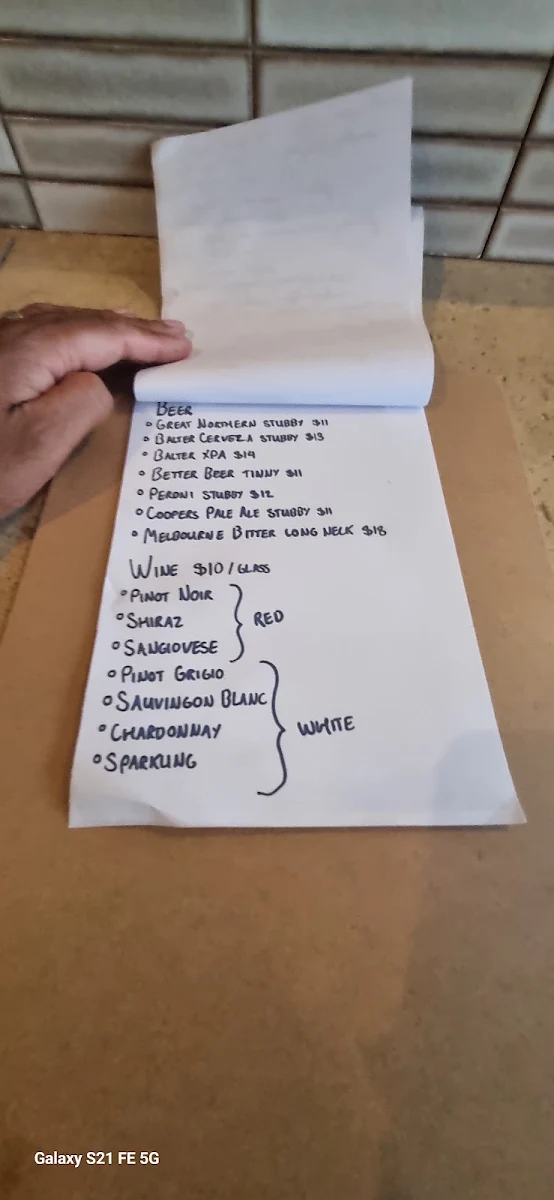 BEER
• GREAT NORTHERN STUBBY $11
• BALTER CERVEZA STUBBY $13
• BALTER XPA $14
• BETTER BEER TINNY $11
• PERONI STUBBY $12
• COOPERS PALE ALE STUBBY $11
• MELBOURNE BITTER LONG NECK $18
WINE $10/GLASS
• PINOT NOIR
• SHIRAZ
RED
• SANGIOVESE
• PINOT GRIGIO
• SAUVINGON BLANC
• CHARDONNAY
WHITE
• SPARKLING
Galaxy S21 FE 5G